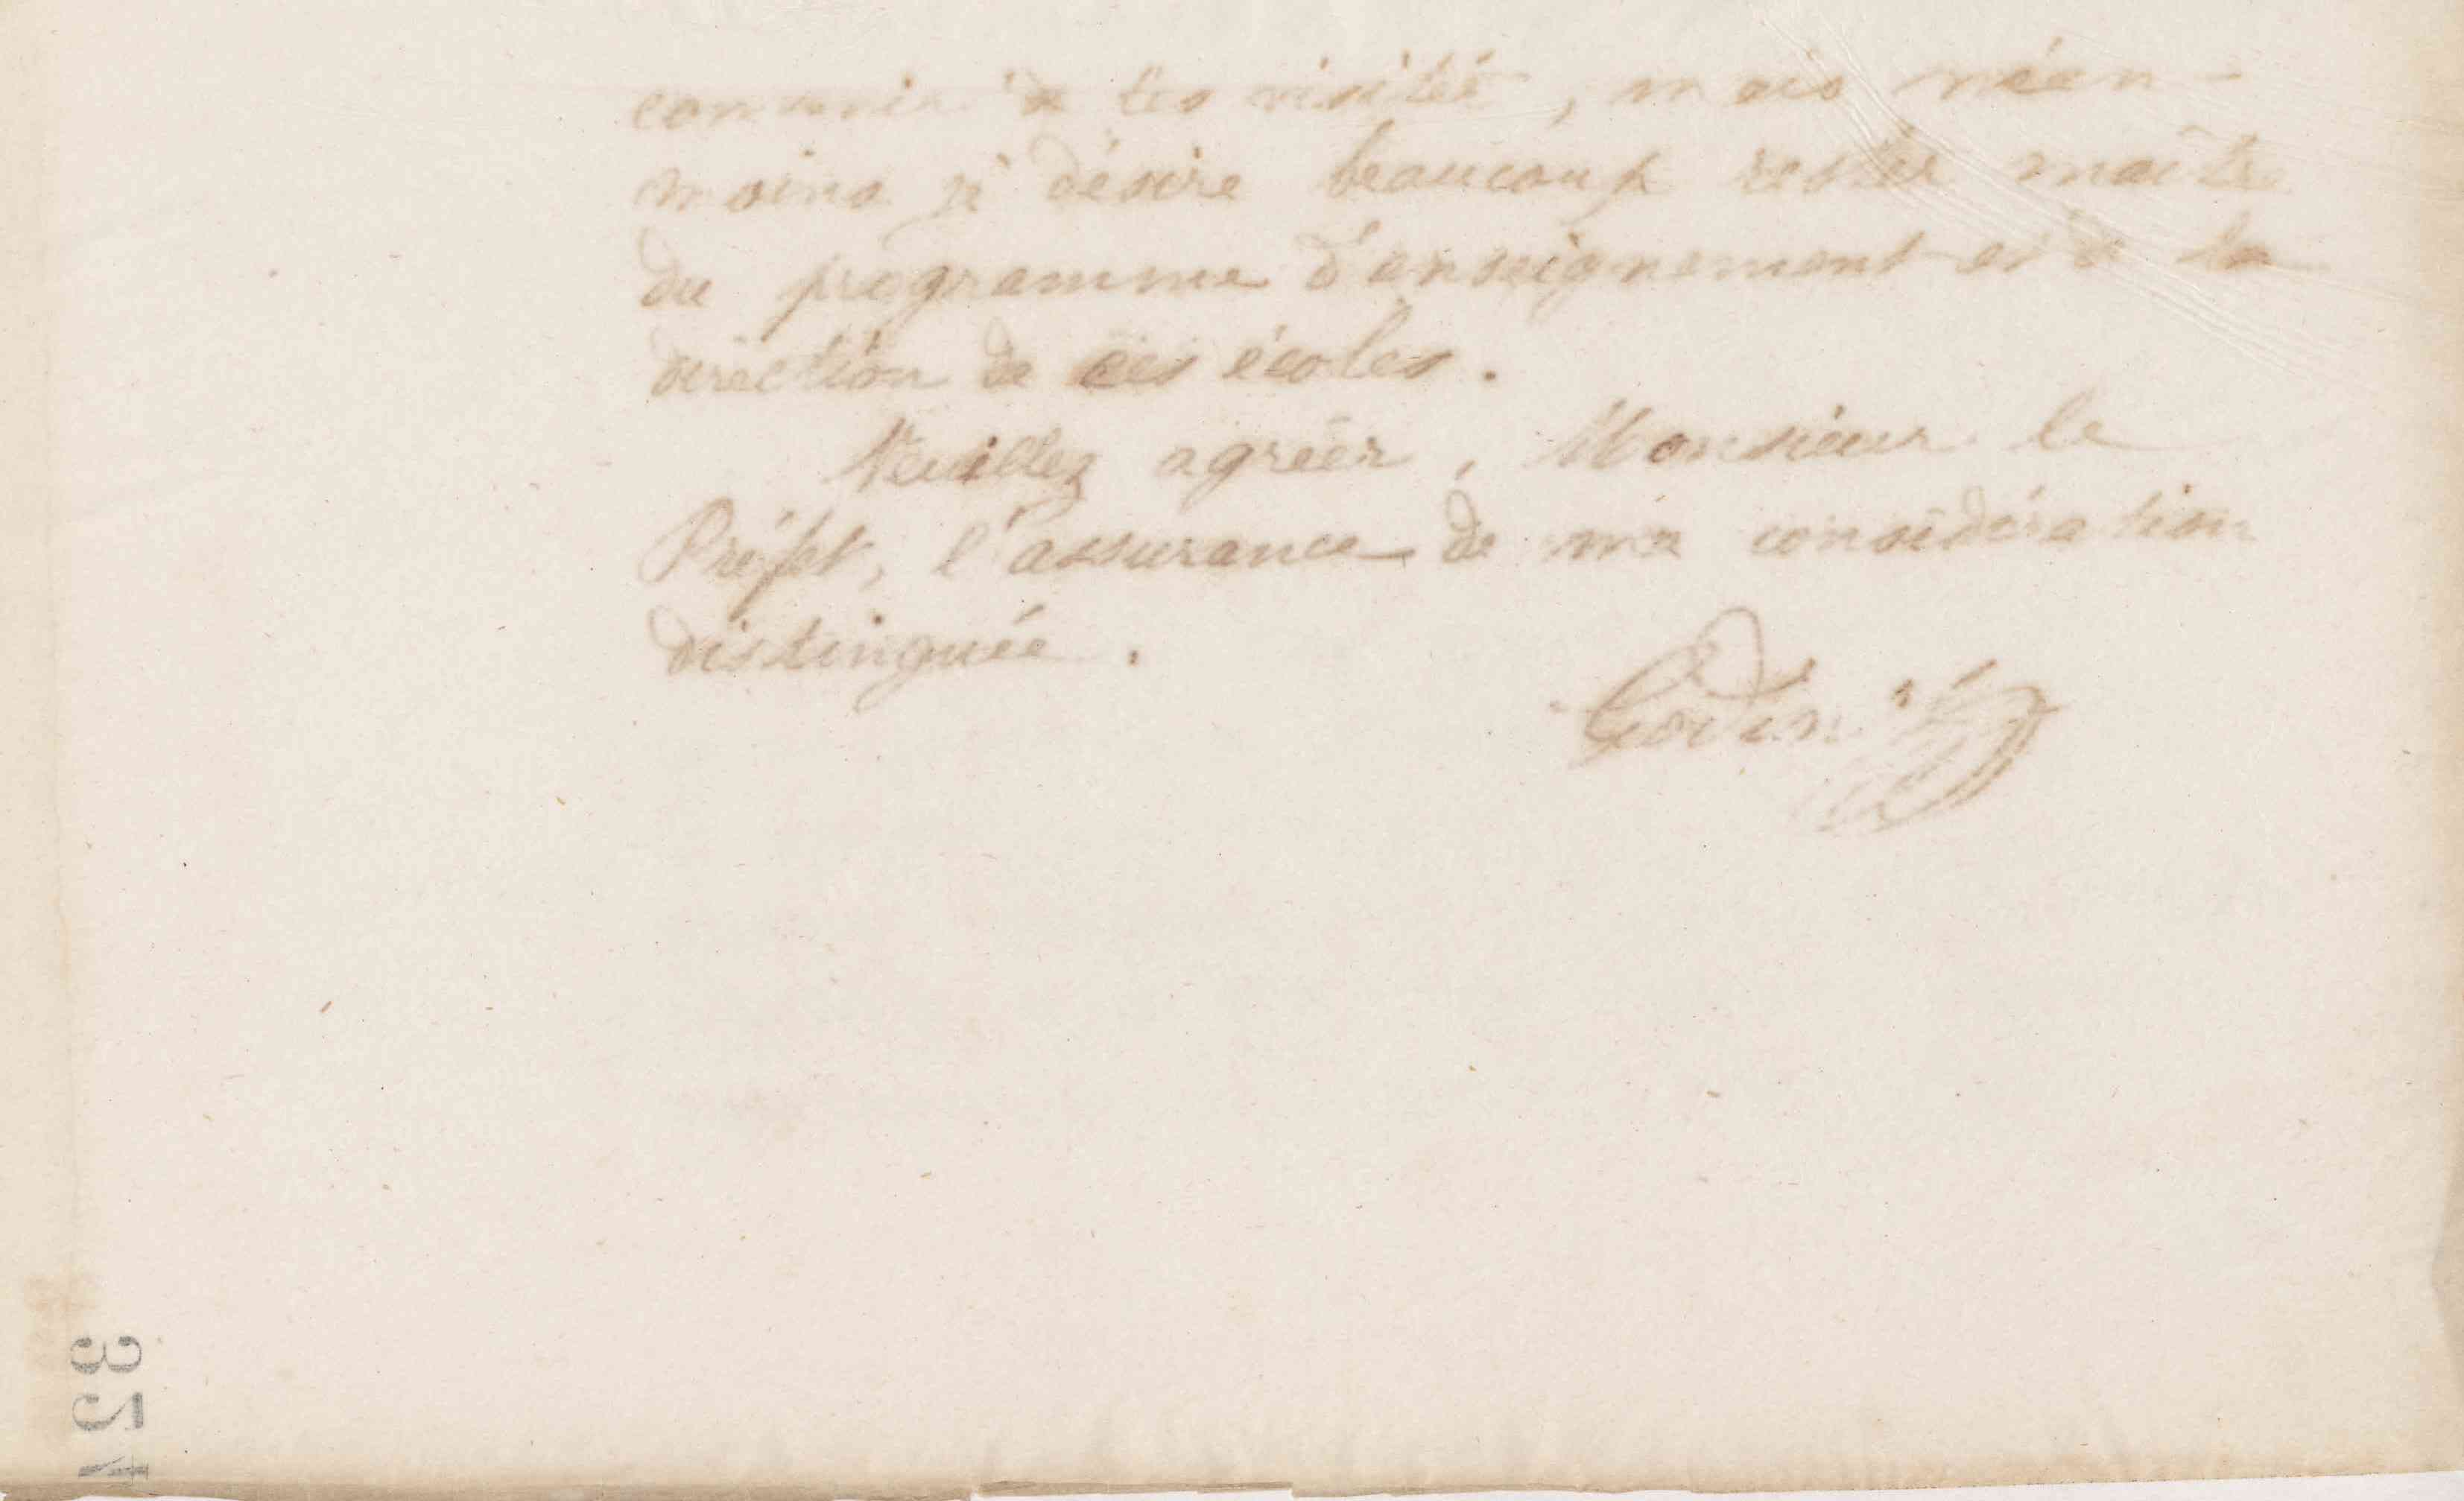 convenir à les visiter, mais néan-
moins je désire beaucoup rester maître
du programme d'enseignement et de la
direction de ces écoles.
Veuillez agréer, Monsieur le
Préfet, l'assurance de ma considération
distinguée.
Godin